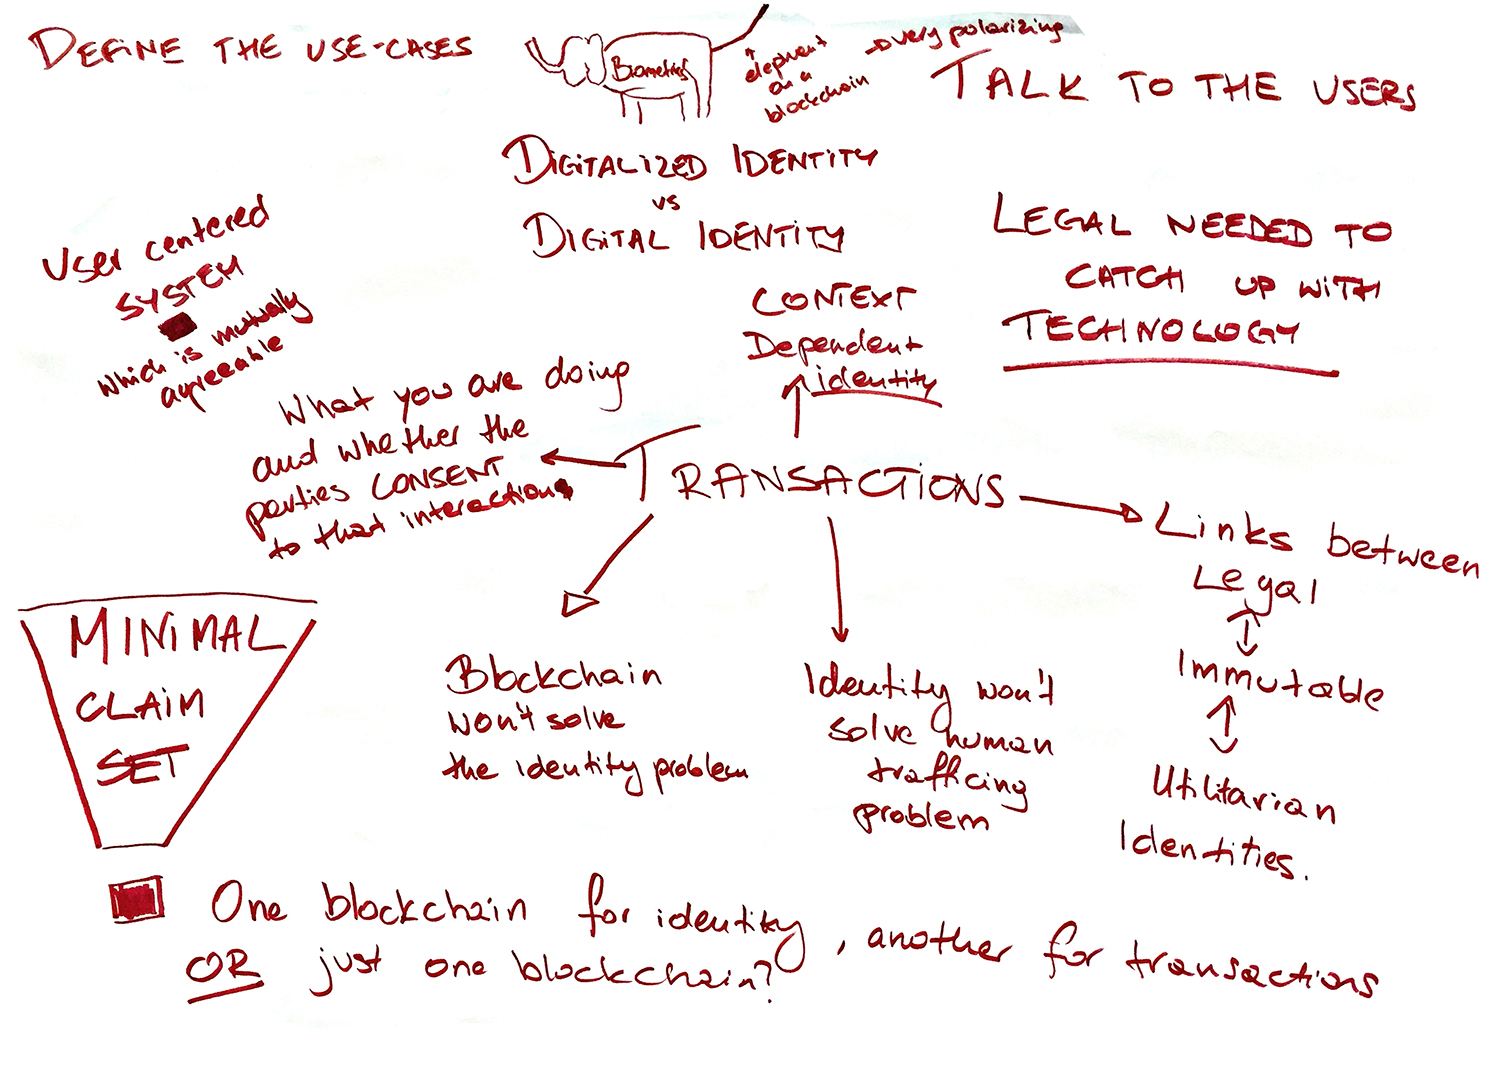 DEFINE THE USE-CASES
Biometrics
elephant
on a
blockchain
very polarizing
TALK TO THE USERS
DIGITALIZED IDENTITY
vs
DIGITAL IDENTITY
User centered
SYSTEM
which is mutually
agreeable
LEGAL NEEDED TO
CATCH UP WITH
TECHNOLOGY
CONTEXT
Dependent
identity
What you are doing
and whether the
parties CONSENT
to that interactions
TRANSACTIONS
Links between
Legal
Immutable
Utilitarian
Identities.
MINIMAL
CLAIM
SET
Blockchain
won't solve
the identity problem
Identity won't
solve human
trafficing
problem
One blockchain for identity, another for transactions
OR just one blockchain?